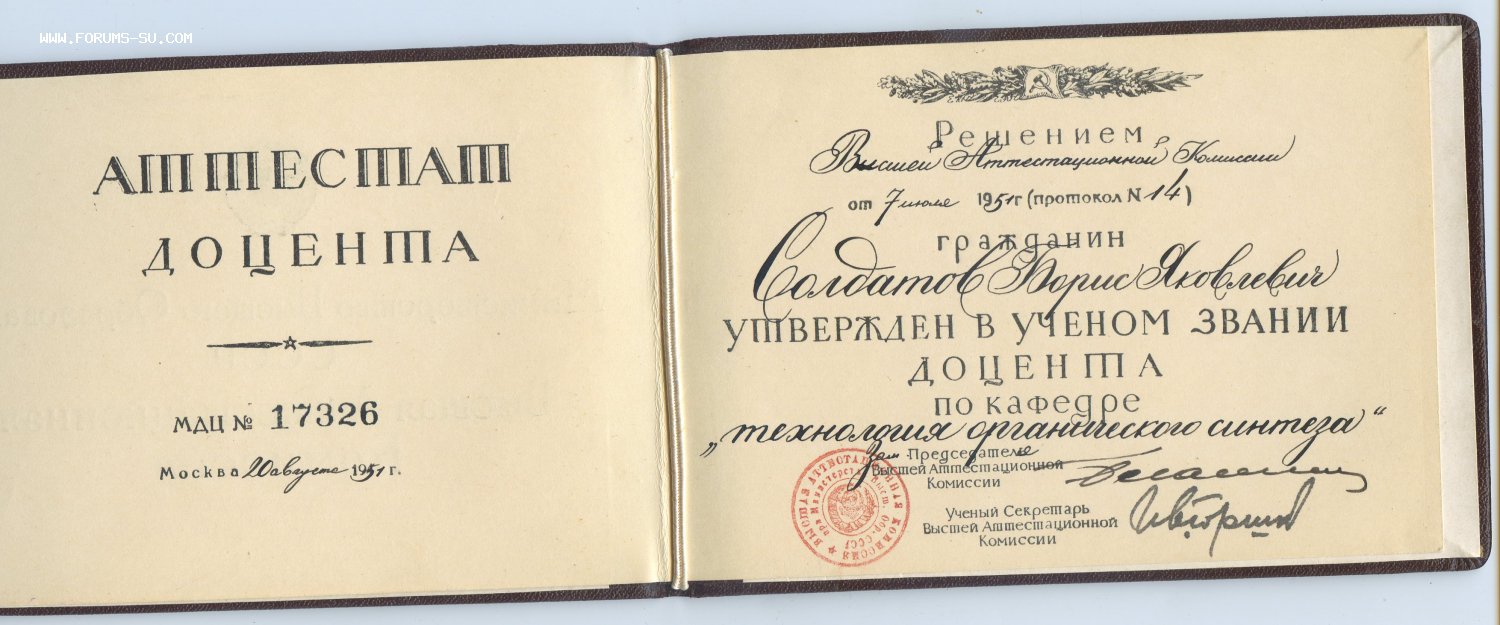 WWW.FORUMS-SU.COM
АТТЕСТАТ
ДОЦЕНТА
МДЦ № 17326
Москва 20 августа 1951 г.
Решением
Высшей Аттестационной Комиссии
от 7 июля 1951 г (протокол N 14)
гражданин
Солдатов Борис Яковлевич
УТВЕРЖДЕН В УЧЕНОМ ЗВАНИИ
ДОЦЕНТА
по кафедре
„технология органического синтеза“
Зам. Председателе
Высшей Аттестационной
Комиссии
Ученый Секретарь
Высшей Аттестационной
Комиссии
ВЫСШАЯ АТТЕСТАЦИОННАЯ КОМИССИЯ
при Министерстве Высш. Обр. СССР